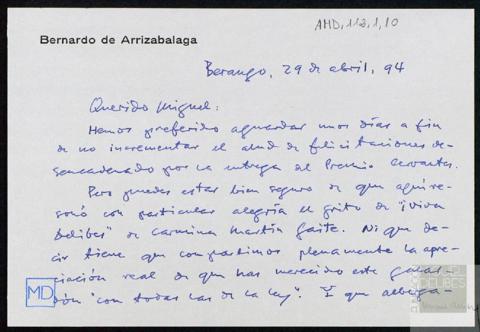 AMD,112,1,10
Bernardo de Arrizabalaga
Berango, 29 de abril, 94
Querido Miguel:
Hemos preferido aguardar unos días a fin
de no incrementar el alud de felicitaciones de-
sencadenado por la entrega del Premio Cervantes.
Pero puedes estar bien seguro de que aquí re-
sonó con particular alegría el grito de "¡Viva
Delibes" de Carmina Martín Gaite. Ni que de-
cir tiene que compartimos plenamente la apre-
ciación real de que has merecido este galar-
dón "con todas las de la ley". Y que alberga-
MD